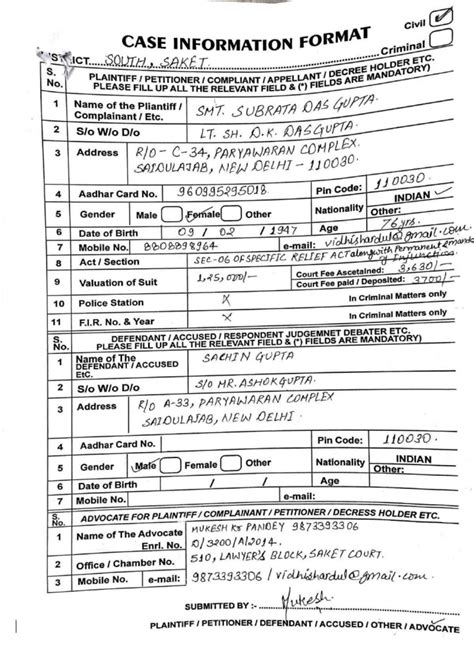 Civil ✓
CASE INFORMATION FORMAT
Criminal
DISTRICT..... SOUTH, SAKET.
S. No. PLAINTIFF / PETITIONER / COMPLIANT / APPELLANT / DECREE HOLDER ETC.
PLEASE FILL UP ALL THE RELEVANT FIELD & (*) FIELDS ARE MANDATORY)
1 Name of the Pliantiff / Complainant / Etc. SMT. SUBRATA DAS GUPTA.
2 S/o W/o D/o LT. SH. D.K. DASGUPTA.
3 Address R/O - C-34, PARYAWARAN COMPLEX.
SAIDULAJAB, NEW DELHI - 110030.
4 Aadhar Card No. 960995295018 Pin Code: 110030.
5 Gender Male Female Other Nationality INDIAN ✓ Other:
6 Date of Birth 09 / 02 / 1947 Age 76 yrs.
7 Mobile No. 8808898964 e-mail: vidhishardul@gmail.com
8 Act / Section SEC-06 OF SPECIFIC RELIEF ACT along with Permanent & manda
of Injunction.
9 Valuation of Suit 1,25,000/- Court Fee Ascetained: 3,630/-
Court Fee paid / Deposited: 3700/-
10 Police Station X In Criminal Matters only
11 F.I.R. No. & Year X In Criminal Matters only
S. No. DEFENDANT / ACCUSED / RESPONDENT JUDGEMNET DEBATER ETC.
PLEASE FILL UP ALL THE RELEVANT FIELD & (*) FIELDS ARE MANDATORY)
1 Name of The DEFENDANT / ACCUSED EtC. SACHIN GUPTA
2 S/o W/o D/o S/O MR. ASHOK GUPTA.
3 Address R/O A-33, PARYAWARAN COMPLEX
SAIDULAJAB, NEW DELHI.
4 Aadhar Card No. Pin Code: 110030.
5 Gender Male Female Other Nationality INDIAN Other:
6 Date of Birth / / Age
7 Mobile No. e-mail:
S. No. ADVOCATE FOR PLAINTIFF / COMPLAINANT / PETITIONER / DECRESS HOLDER ETC.
1 Name of The Advocate MUKESH Kr PANDEY 9873393306
Enrl. No. D/3200/A/2014.
2 Office / Chamber No. 510, LAWYER'S BLOCK, SAKET COURT.
3 Mobile No. e-mail: 9873393306 / vidhishardul@gmail.com
SUBMITTED BY :- Mukesh
PLAINTIFF / PETITIONER / DEFENDANT / ACCUSED / OTHER / ADVOCATE